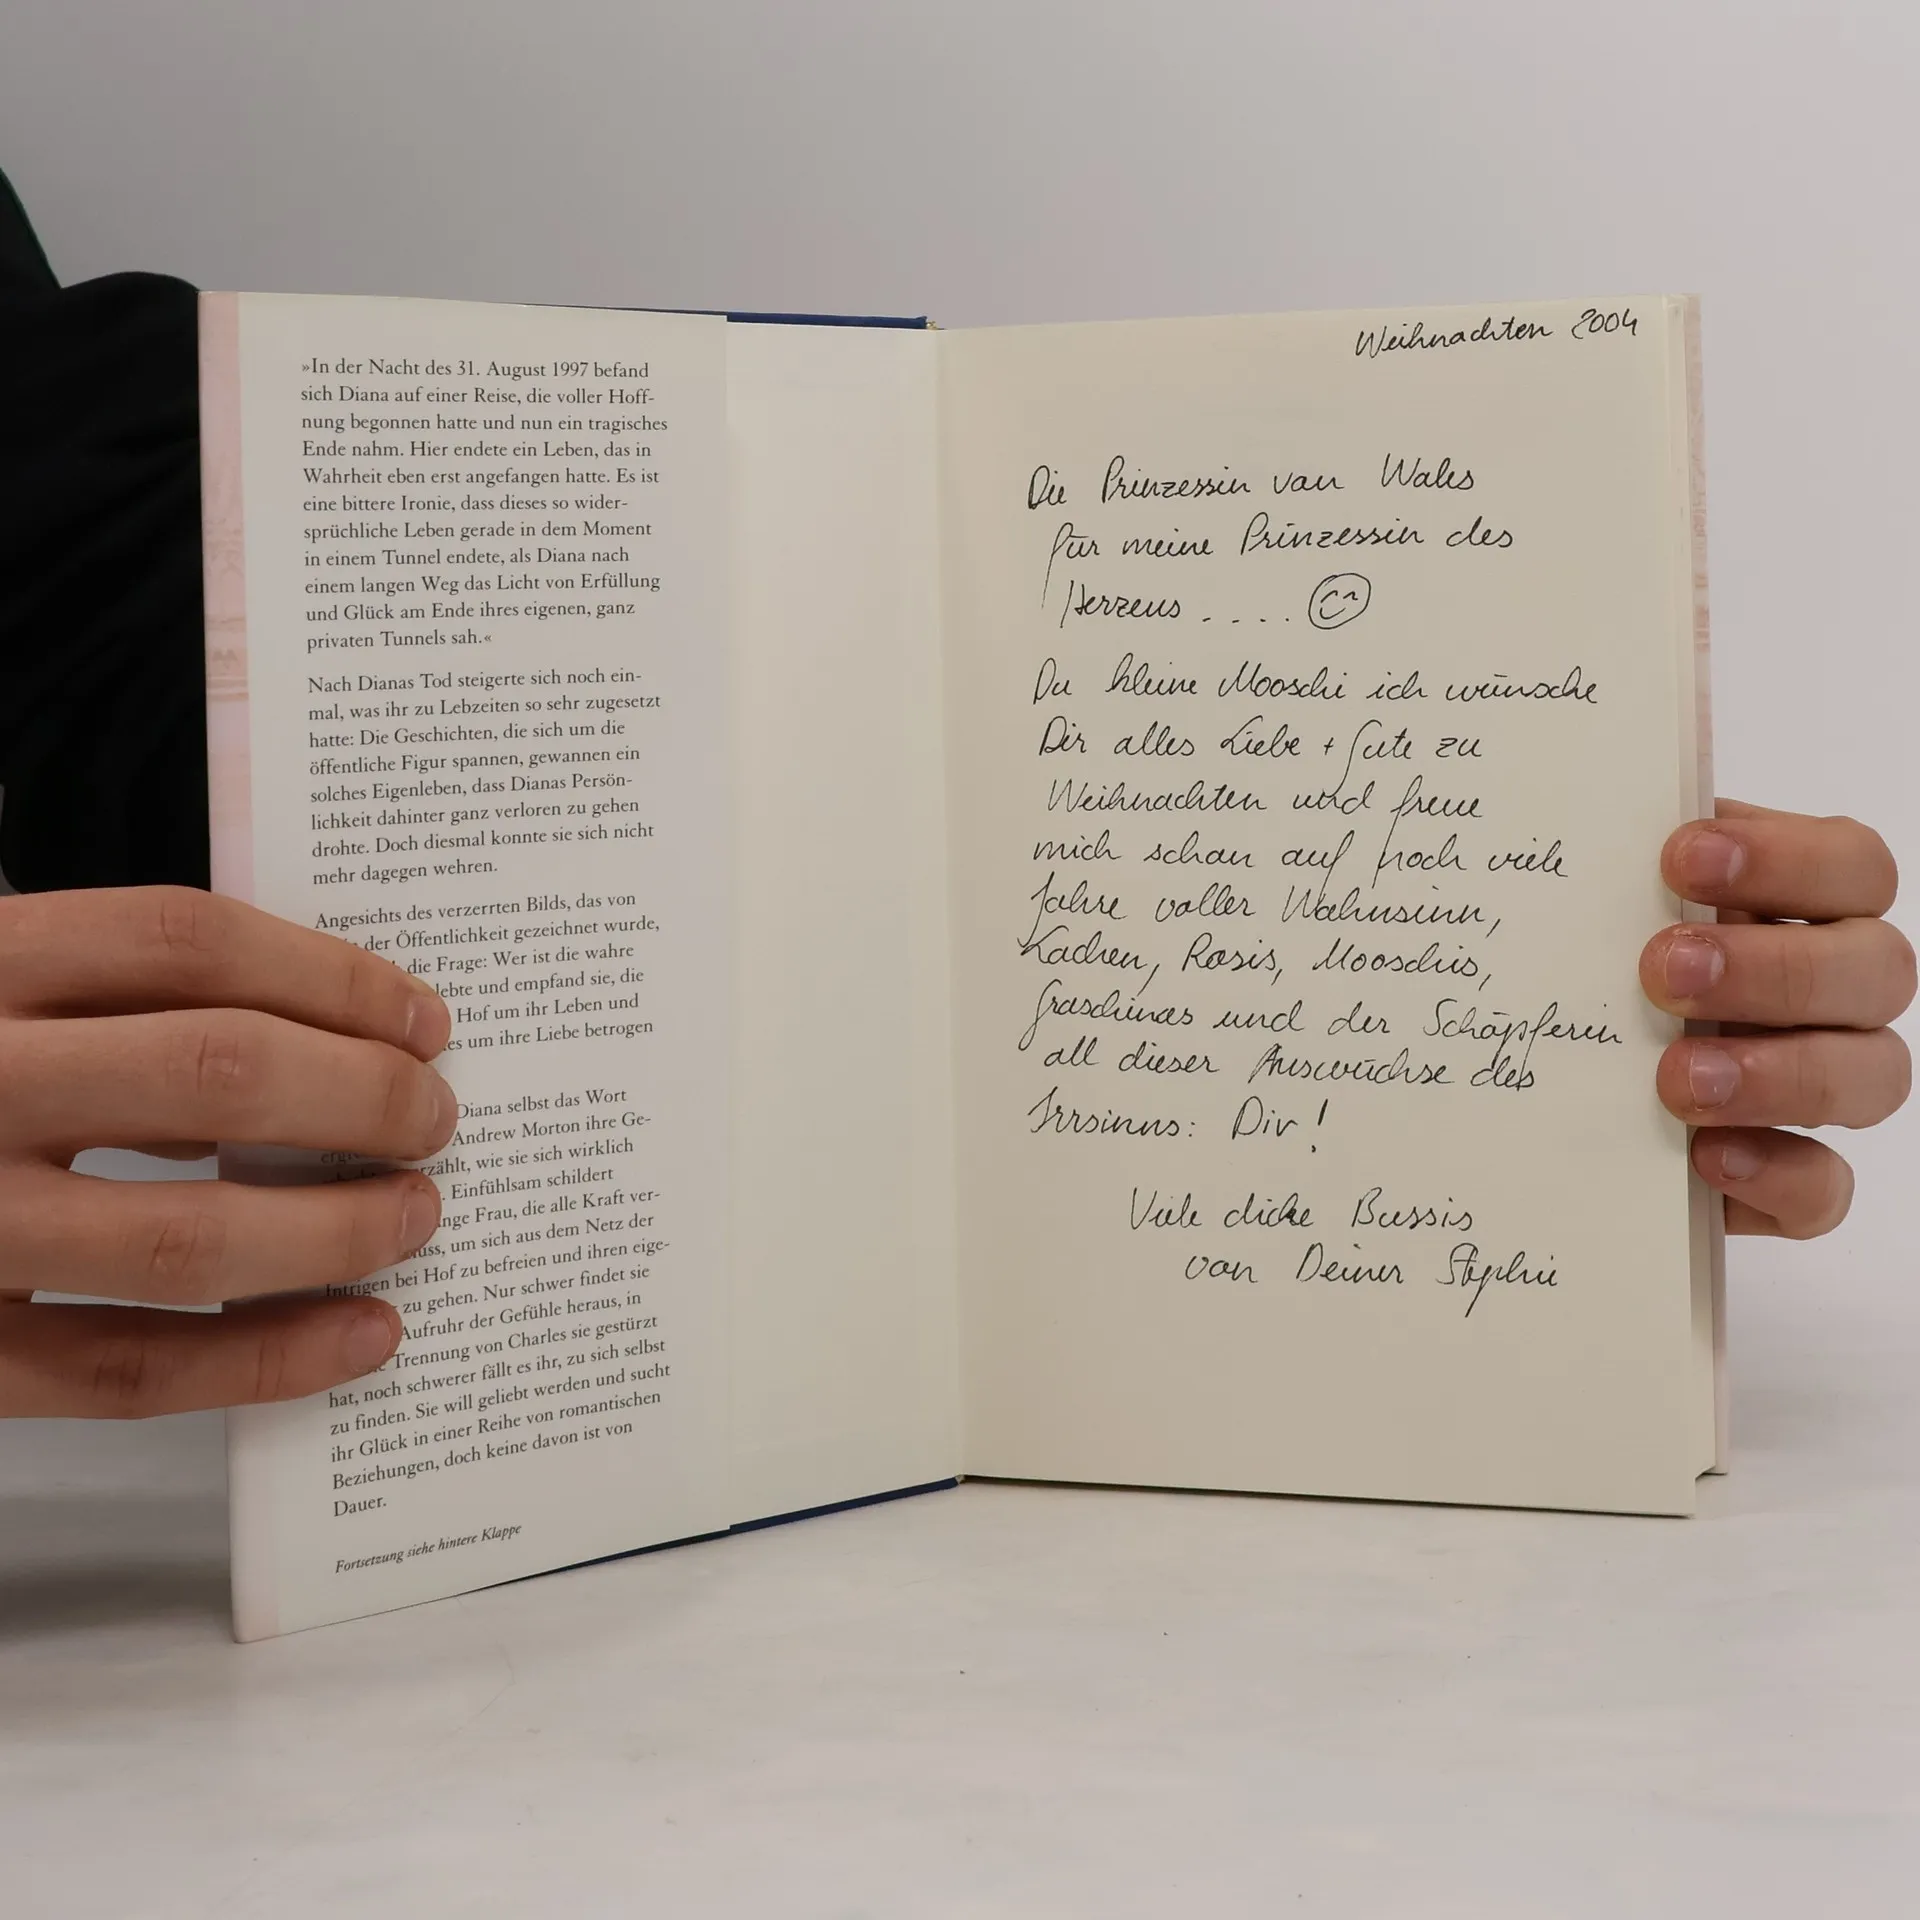 »In der Nacht des 31. August 1997 befand
sich Diana auf einer Reise, die voller Hoff-
nung begonnen hatte und nun ein tragisches
Ende nahm. Hier endete ein Leben, das in
Wahrheit eben erst angefangen hatte. Es ist
eine bittere Ironie, dass dieses so wider-
sprüchliche Leben gerade in dem Moment
in einem Tunnel endete, als Diana nach
einem langen Weg das Licht von Erfüllung
und Glück am Ende ihres eigenen, ganz
privaten Tunnels sah.«
Nach Dianas Tod steigerte sich noch ein-
mal, was ihr zu Lebzeiten so sehr zugesetzt
hatte: Die Geschichten, die sich um die
öffentliche Figur spannen, gewannen ein
solches Eigenleben, dass Dianas Persön-
lichkeit dahinter ganz verloren zu gehen
drohte. Doch diesmal konnte sie sich nicht
mehr dagegen wehren.
Angesichts des verzerrten Bilds, das von
der Öffentlichkeit gezeichnet wurde,
die Frage: Wer ist die wahre
lebte und empfand sie, die
Hof um ihr Leben und
um ihre Liebe betrogen
Diana selbst das Wort
Andrew Morton ihre Ge-
erzählt, wie sie sich wirklich
Einfühlsam schildert
Frau, die alle Kraft ver-
um sich aus dem Netz der
Intrigen bei Hof zu befreien und ihren eige-
zu gehen. Nur schwer findet sie
Aufruhr der Gefühle heraus, in
Trennung von Charles sie gestürzt
hat, noch schwerer fällt es ihr, zu sich selbst
zu finden. Sie will geliebt werden und sucht
ihr Glück in einer Reihe von romantischen
Beziehungen, doch keine davon ist von
Dauer.
Fortsetzung siehe hintere Klappe
Weihnachten 2004
Die Prinzessin von Wales
für meine Prinzessin des
Herzens ....
Du kleine Mooschi ich wünsche
Dir alles Liebe + Gute zu
Weihnachten und freue
mich schon auf noch viele
Jahre voller Wahnsinn,
Lachen, Rosis, Mooschis,
Graschinas und der Schöpferin
all dieser Auswüchse des
Irrsinns: Dir!
Viele dicke Bussis
von Deiner Stephie